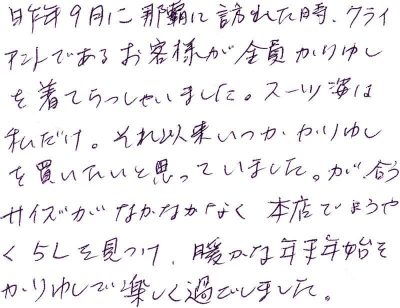 昨年9月に那覇に訪れた時、クライ
アントであるお客様が全員かりゆし
を着てらっしゃいました。スーツ姿は
私だけ。それ以来いつかかりゆし
を買いたいと思っていました。が、合う
サイズがなかなかなく本店でようや
く5Lを見つけ、暖かな年末年始を
かりゆしで楽しく過ごしました。